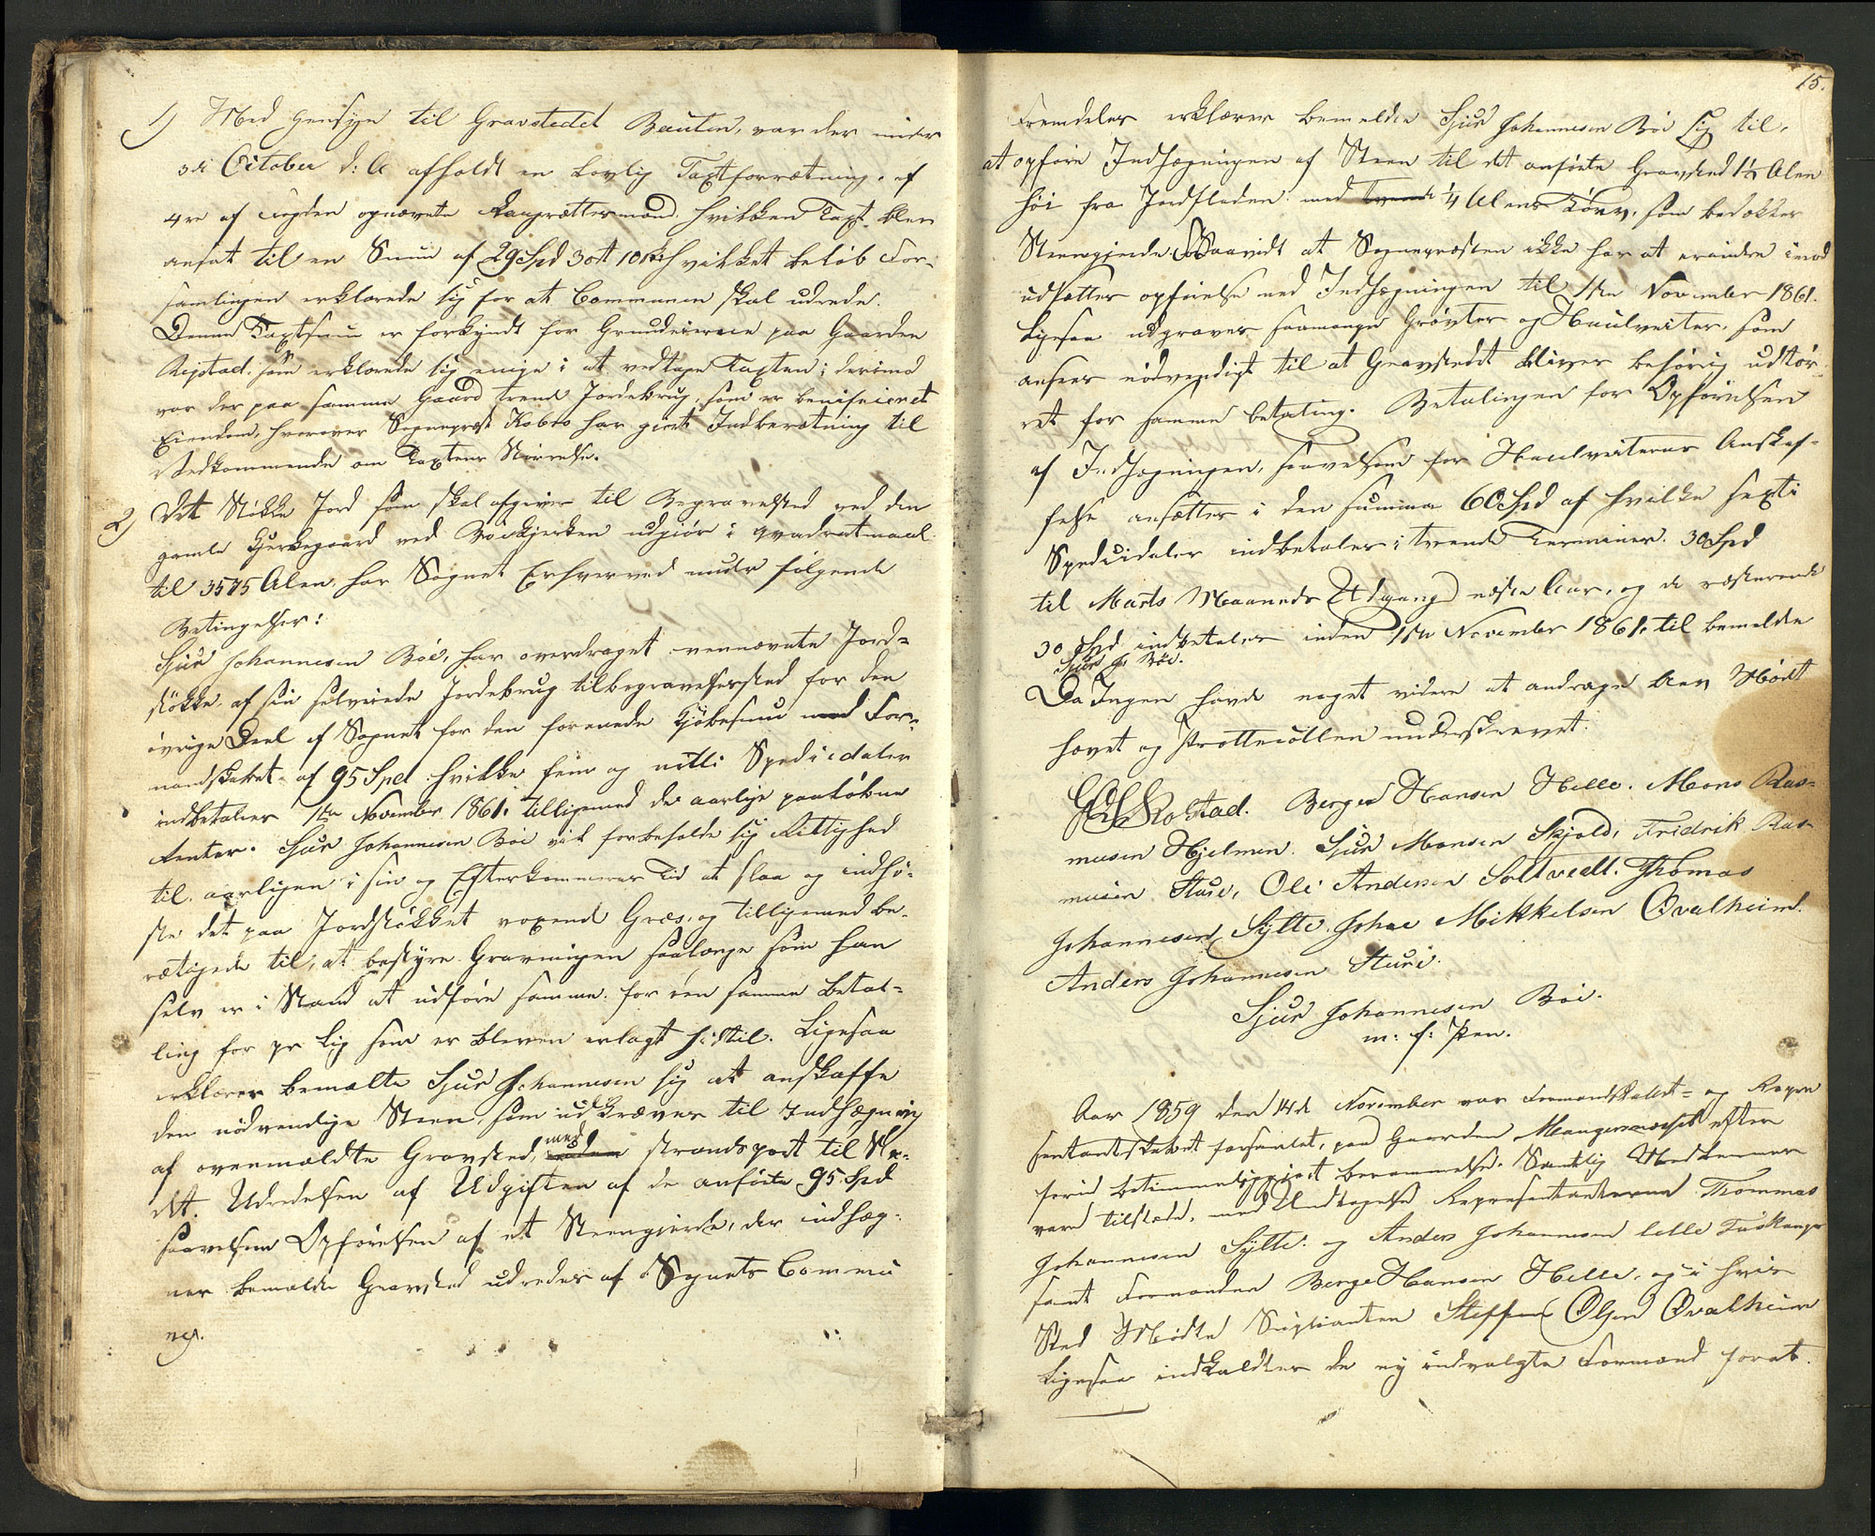 1) Med Hensyn til Gravstedet Bauten, var der under
3die October d: A afholdt en Lovlig Taxtforretning, af
4re af Lægden opnævnte Laugrættesmænd, hvilken Taxt blev
ansat til en Summ af 29 Spd 3 ort 10 sk hvilket beløb For-
samlingen erklærede sig for at Communen skal udrede.
Denne Taxtsum er forkyndt for Grundeierne paa Gaarden
Rejstad, som erklærede sig enige i at vedtage Taxten; derimod
var der paa samme Gaard trend Jordebrug, som er benificeret
Eiendom, hvorover Sognepræst Kobro har gjort Indberetning til
Vedkommende om Taxtens Størrelse.
2) Det Støkke Jord som skal afgives til Begravelsested ved den
gamle Kjerkegaard ved Bøekjerken udgjør i qvadratmaal
til 3575 Alen, har Sognet Erhvervet under følgende
Betingelser:
Sjur Johannesen Böe, har overdraget nævnte Jord=
støkke af sin selveiende Jordebrug til begravelsested for den
øvrige Deel af Sognet for den forenede Kjøbesum med For-
mandskabet af 95 Spd hvilke fem og nitti Speciedaler
indbetaler 1ste November 1861. tilligemed de aarlige paaløbne
Renter. Sjur Johannesen Böe vil forbeholde sig Rettighed
til aarligen i sin og Efterkommeres Tid at slaa og indhø-
ste det paa Jordstøkket voxende Græs, og tilligemed be-
rætigede til, at bestyre Gravningen saalænge som han
selv er i Stand at udføre samme, for den samme Betal-
ling for pr Lig som er bleven erlagt hidtil. Ligesaa
erklærer bemældte Sjur Johannesen sig at anskaffe
den nødvendige Steen, som udkræves til Indhægning
af ovenmældte Gravsted, med strandsport til Ste-
det. Udredelsen af Udgiften af de anførte 95 Spd
saavelsom Opførelsen af et Steengjerde, der indhæg-
ner bemældte Gravsted udredes af Sognets Commu
ne.
15.
Fremdeles erklærer bemeldte Sjur Johannesen Böe sig til,
at opføre Indhægningen af Steen til det anførte Gravsted 1½ Alen
høi fra Jordfladen med ¼ Alens Törv, som bedækker
Steengjerde. Saavidt at Sognepræsten ikke har at erindre imod
udsættes opførelse med Indhægningen til 1ste November 1861.
Ligesaa udgraves saamange Grøvter og Haulveiter, som
ansees nødvendigt til at Gravstedet bliver behørig udtør-
ret for samme betaling. Betalingen for Opførelsen
af Indhægningen, saavelsom for Haulveiternes Anskaf-
felse ansættes i den summa 60 Spd af hvilke sexti
Speciedaler indbetales i tvende Terminer. 30 Spd
til Marts Maaneds Udgang næste Aar, og de resterende
30 Spd indbetales inden 1ste November 1861. til bemeldte
Sjur J. Böe.
Da Ingen havde noget videre at andrage blev Mødet
hævet og Prottecollen underskrevet.
Rostad. Berge Hansen Helle. Mons Ras-
musen Hjelmen. Sjur Monsen Skjold, Fridrik Ras-
musen Sture, Ole Andersen Soltvedt. Thomas
Johannesen Sylte. Johne Mikkelsen Qvalheim.
Anders Johannesen Sture.
Sjur Johannesen Böe.
m: f: Pen.
Aar 1859 den 14de November var Formandskabet= og Repre
sentantskabet forsamlet, paa Gaarden Mangernæset efter
forud betimmeliggjort berammelse. Samtlig Medlemmer
vare tilstede, med Undtagelse Representanterne Thommas
Johannesen Sylte. og Anders Johannesen lille Toskanger
samt Formanden Berge Hansen Helle, og i hvis
Sted Mødte Supleanten Steffen Olsen Qvalheim
Ligesaa indkaldtes de ny indvalgte Formænd forat.